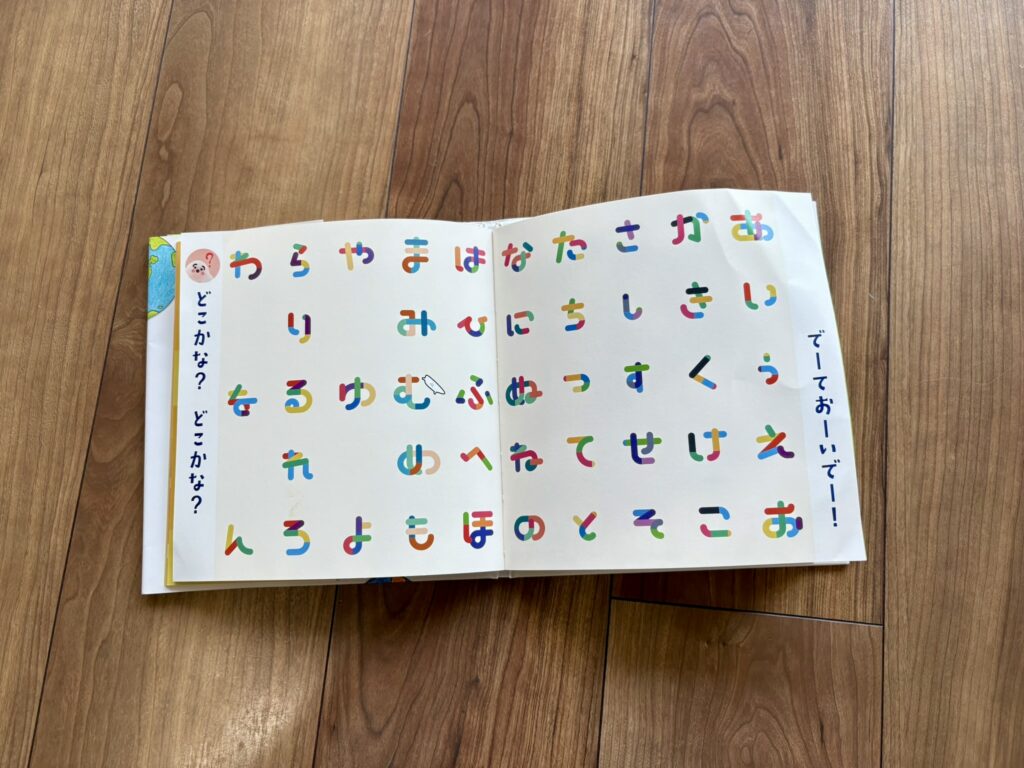 でーておーいでー!
あいうえお
かきくけこ
さしすせそ
たちつてと
なにぬねの
はひふへほ
まみむめも
やゆよ
らりるれろ
わをん
?
どこかな? どこかな?